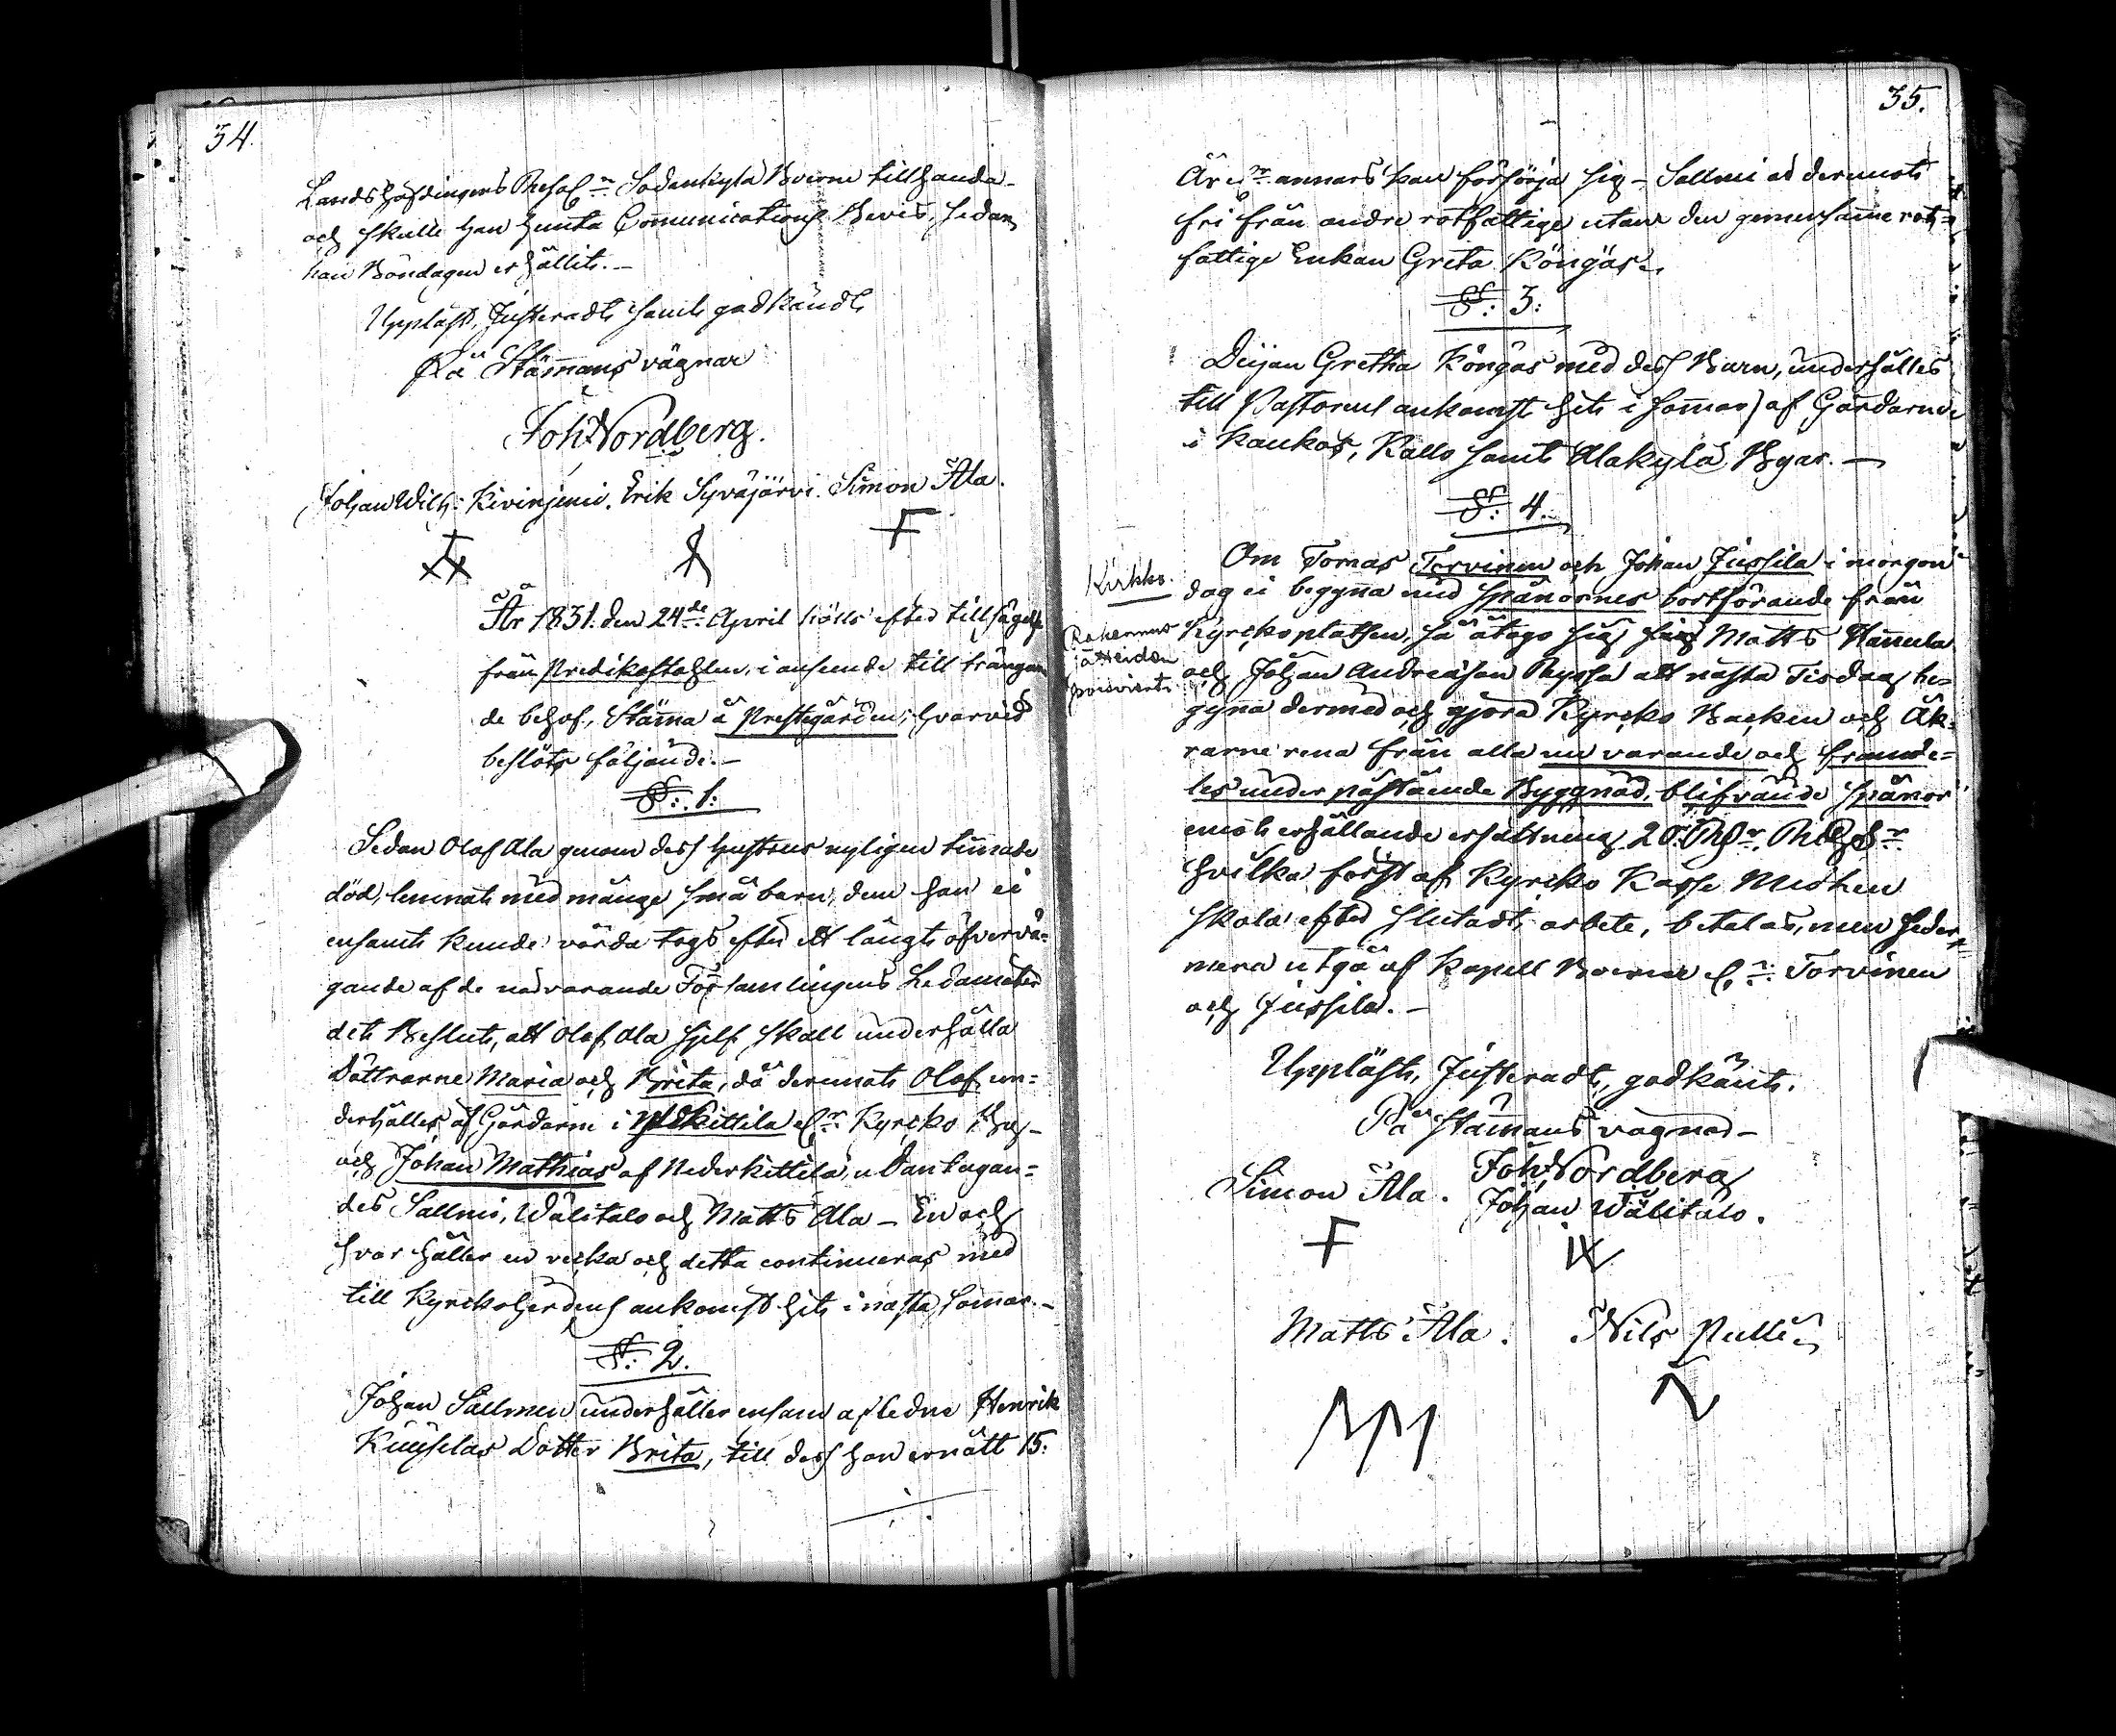 34.
Landshöfdingens Resol:n Sodankylä Boerne tillhanda-
och skulle han hemta Communications Bevis, sedan
han Böndagen erhållit. —
Uppläst, Justeradt samt godkändt
På Stämmans vägnar
Joh: Nordberg.
Johan Wilh: Kivinjemi. Erik Syväjärvi. Simon Ala.
År 1831. den 24de April hölls efter tillsägelse
från Predikostohlen, i anseende till trängan
de behof, Stämma å Prestegården; hvarvid
beslöts följande. —
§: 1:
Sedan Olof Ala genom dess hustrus nyligen timade
död, lemnats med månge små barn, dem han ei
ensamt kunde vårda togs efter ett långt öfvervä=
gande af de närvarande Församlingens Ledamöter
det Beslut, att Olof Ala sjelf skall underhålla
Döttrarne Maria och Brita, då deremot Olof un=
derhålles af Gårdarne i Kittilä el:r Kyrcko By —
och Johan Mathias af Nederkittilä, undantagan=
des Sallmi, Välitalo och Matts Ala — En och
hvar håller en vecka och detta continueras med
till Kyrckoherdens ankomst hit i nästa sommar. —
§: 2.
Johan Sallmen underhåller ensam afledne Henrik
Kuuselas Dotter Brita, till dess hon ernått 15:
35.
År el:r annars kan försörja sig — Sallmi är deremot
fri från andre rotfattige utom den gemensamme rot=
fattige Enkan Greta Köngäs.
§: 3:
Pijan Gretha Köngäs med dess Barn, underhålles
till Pastorns ankomst hit i sommar, af Gårdarne
i Kaukos, Kallo samt Alakylä Byar. —
§: 4.
Kirkko.
Rakennus
jätteiden
poisvienti
Om Tomas Torvinen och Johan Jussila i morgon
dag ei begynna med spånornes bortförande från
Kyrckoplatsen, så åtogo sig Matts Hannula
och Johan Andreasson Ryssa att nästa Tisdag be=
gynna dermed och gjöra Kyrcko Backen och Åk=
rarne rena från alla nu varande och framde=
les under påstående Byggnad, blifvande spånor
emot erhållande ersättning 20: Rd:r Rdgs:r
hvilka först af Kyrcko Kassa Medlen
skola efter slutadt arbete, betalas, men seder=
mera utgå af Kapell Boerne el:r Torvinen
och Jussila. —
Uppläst, Justeradt, godkänt.
På Stämmans vägnar —
Joh: Nordberg
Simon Ala. Johan Wälitalo.
Matts Ala. Nils Pulli